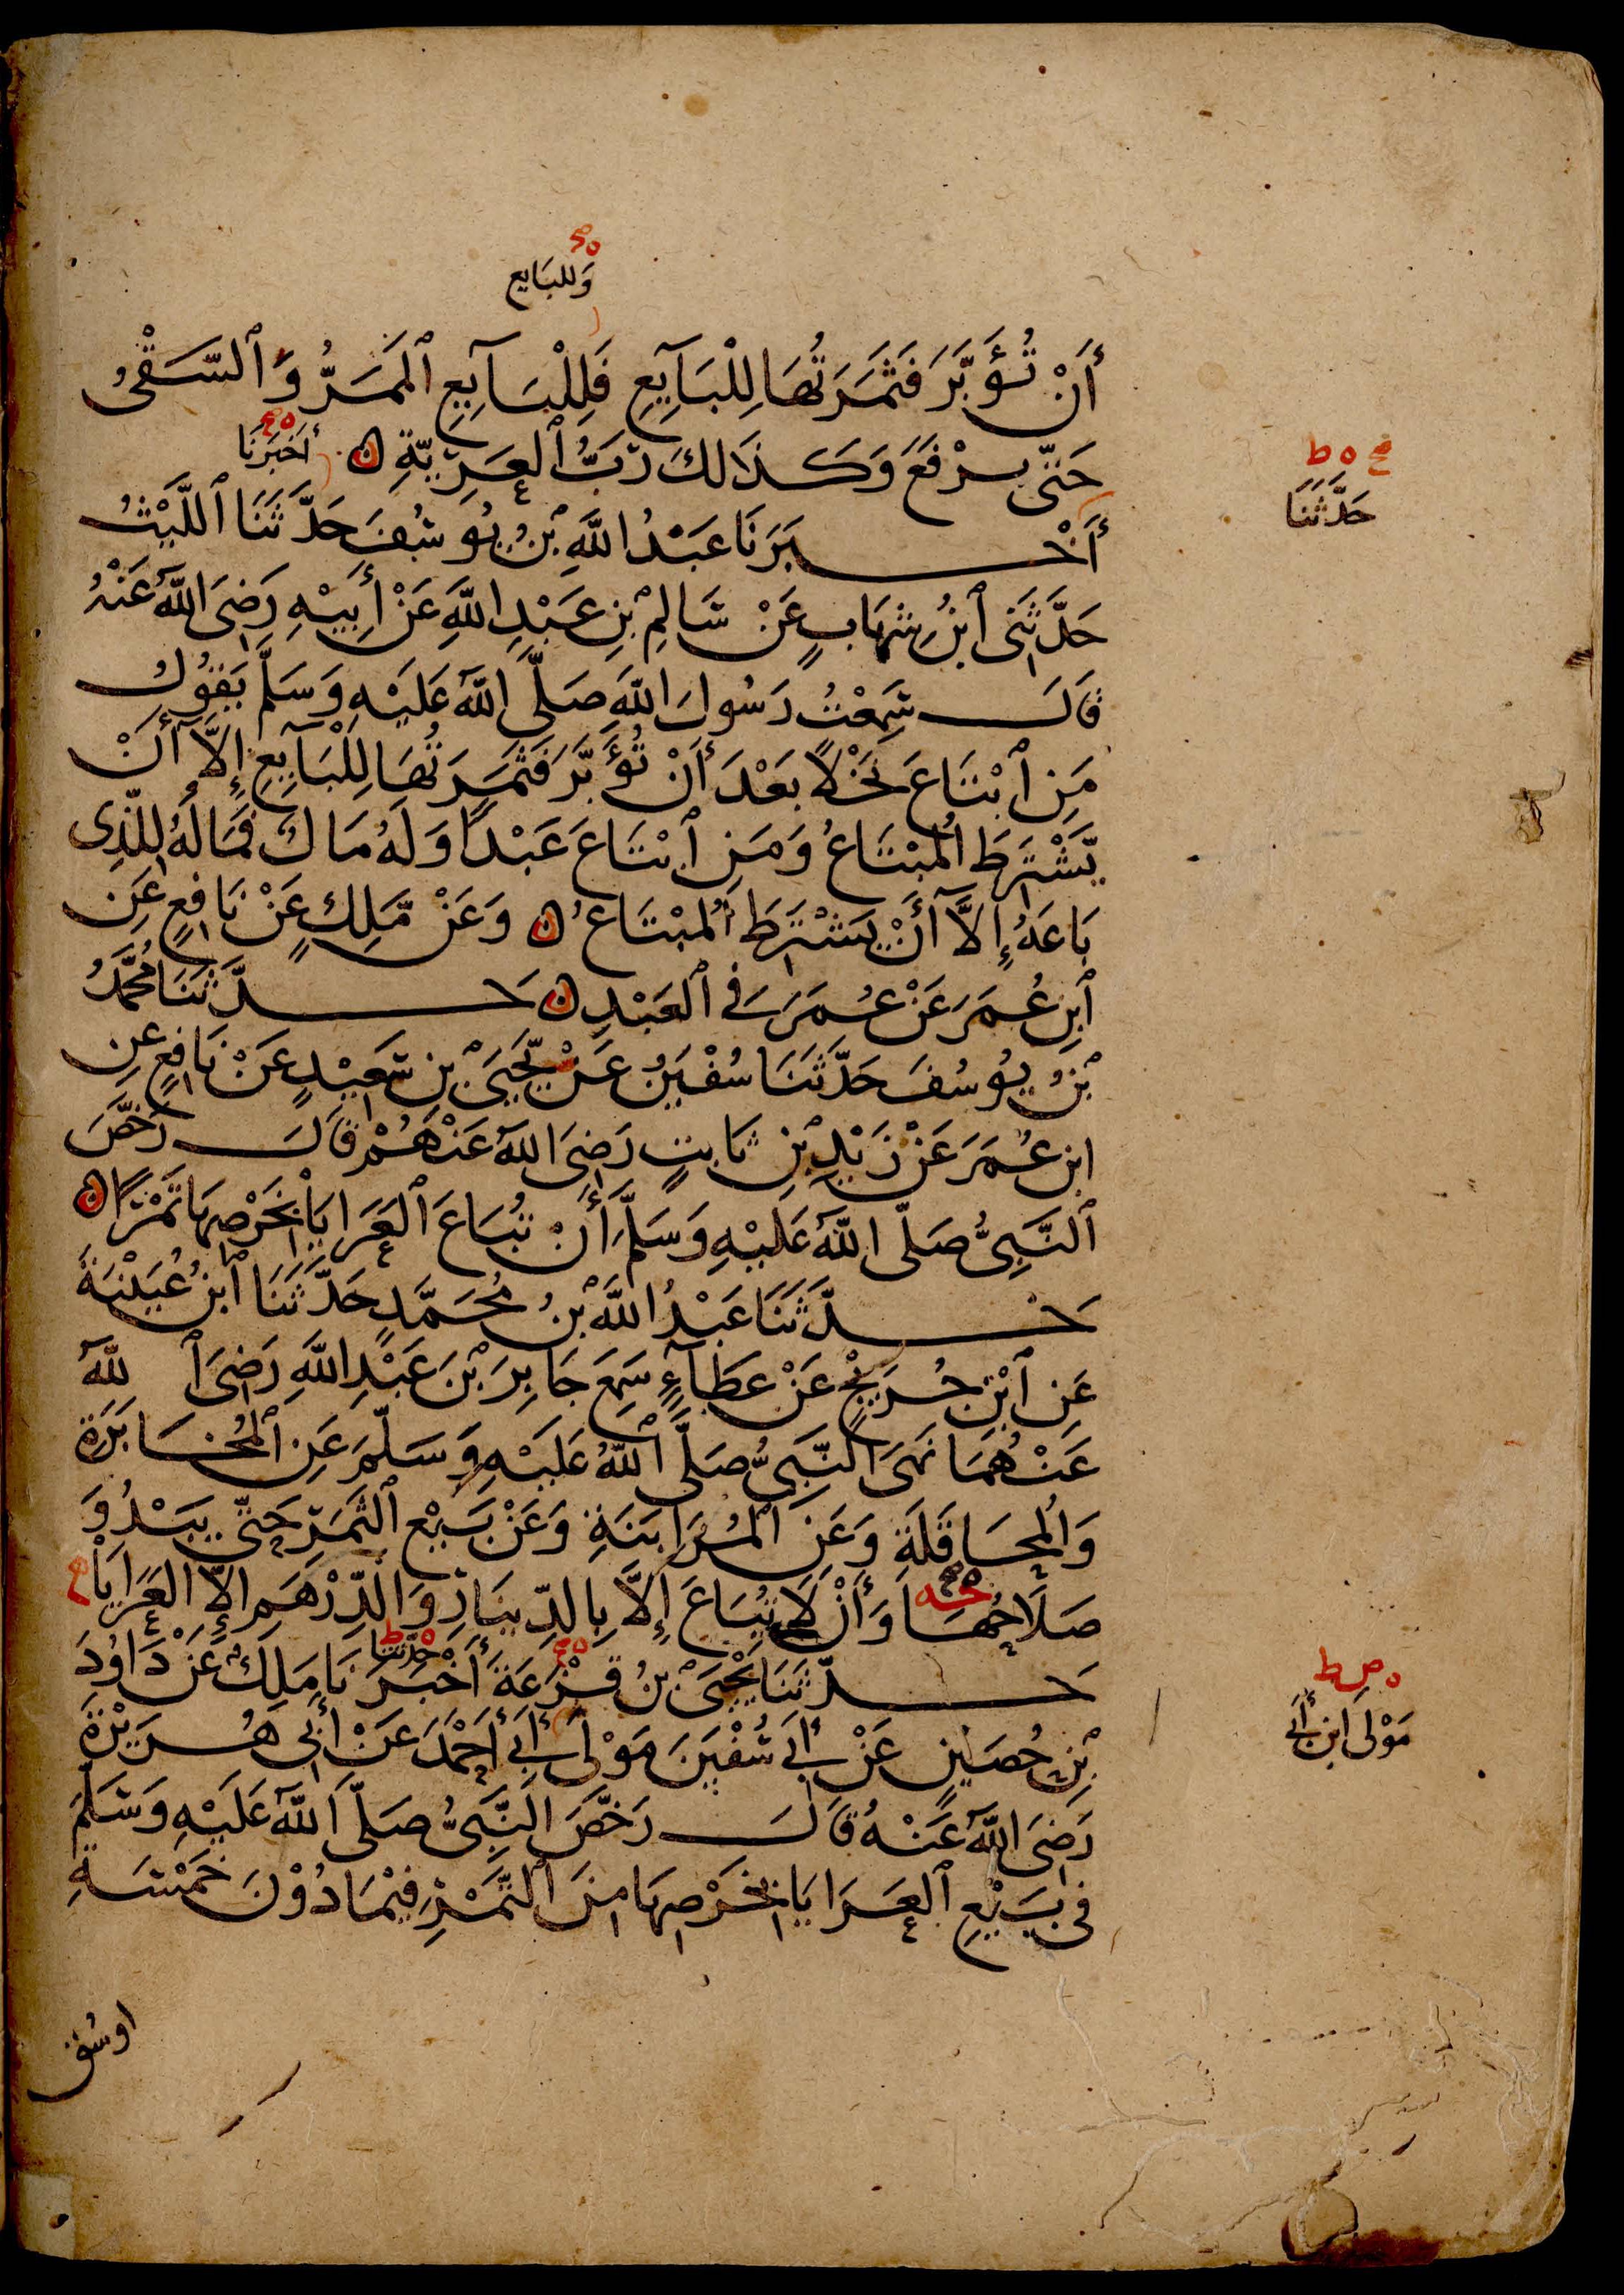 وَللبَايع
أَنْ تُؤَبَّرَ فَثَمَرَتُهَا لِلْبَآيِعِ فَلِلْبَآيِعِ ٱلْمَمَرُّ وَٱلسَّقْىُ
حَتّٰى يرْفَعَ وَكَذَالِكَ رَبُّ ٱلْعَرِيَّةِ ن أَخبَرَنَا
حَدَّثَنَا
أَخْبَرَنَا عَبْدُ اللَّهِ بْنُ يُوسُفَ حَدَّثَنَا ٱللَّيْثُ
حَدَّثَنِى ٱبْنُ شِهَابٍ عَنْ سَالِمِ بْنِ عَبْدِ اللَّهِ عَنْ أَبِيْهِ رَضِىَ اللَّهُ عَنْهُ
قَالَ سَمِعْتُ رَسُولَ اللَّهِ صَلَّى اللَّهُ عَلَيْهِ وَسَلَّمَ يَقُوْلُ
مَنِ ٱبْتَاعَ نَخْلاً بَعْدَ أَنْ تُؤَبَّرَ فَثَمَرَتُهَا لِلْبَآيِعِ إِلَّا أَنْ
يَّشْتَرِطَ الْمُبْتَاعُ وَمَنِ ٱبْتَاعَ عَبْدًا وَلَهُ مَالٌ فَمَالُهُ لِلَّذِى
بَاعَهُ إِلَّا أَنْ يَشْتَرِطَ ٱلْمُبْتَاعُ ن وَعَنْ مَّلِكٍ عَنْ نَافِعٍ عَنِ
ٱبْنِ عُمَرَ عَنْ عُمَرَ فِى ٱلْعَبْدِ ن حَدَّثَنَا مُحَمَّدُ
بْنُ يُوسُفَ حَدَّثَنَا سُفْيَنُ عَنْ يَّحْيَى بْنِ سَعِيْدٍ عَنْ نَافِعٍ عَنِ
ابْنِ عُمَرَ عَنْ زَيْدِ بْنِ ثَابِتٍ رَضِىَ اللَّهُ عَنْهُمْ قَالَ رَخَّصَ
ٱلنَّبِىُّ صَلَّى اللَّهُ عَلَيْهِ وَسَلَّمَ أَنْ تُبَاعَ ٱلْعَرَايَا بِخَرْصِهَا تَمْرًا ن
حَدَّثَنَا عَبْدُ اللَّهِ بْنُ مُحَمَّدٍ حَدَّثَنَا ٱبْنُ عُيَيْنَةَ
عَنِ ٱبْنِ جُرَيْجٍ عَنْ عَطَآءٍ سَمِعَ جَابِرَ بْنَ عَبْدِ اللَّهِ رَضِىَ ٱللَّهُ
عَنْهُمَا نَهَى النَّبِىُّ صَلَّى ٱللَّهُ عَلَيْهِ وَسَلَّمَ عَنِ ٱلْمُخَابَرَةِ
وَالْمُحَاقَلَةِ وَعَنِ الْمُزَابَنَةِ وَعَنْ بَيْعِ ٱلثَّمَرِ حَتّٰى يَبْدُوَ
صَلَاحُهَا وَأَنْ لَا تُبَاعَ إِلَّا بِالدِّينَارِ وَالدِّرْهَمِ إِلَّا الْعَرَايَا
حَدَّثَنَا يَحْيَى بْنُ قَزَعَةَ أَخْبَرَنَا مَلِكٌ عَنْ دَاوُدَ
حَدَّثَنَا
بْنِ حُصَيْنٍ عَنْ أَبِى سُفْيَنَ مَوْلَى أَبِى أَحْمَدَ عَنْ أَبِى هُرَيْرَةَ
مَوْلَى ابْنِ أَبِى
رَضِىَ اللَّهُ عَنْهُ قَالَ رَخَّصَ النَّبِىُّ صَلَّى اللَّهُ عَلَيْهِ وَسَلَّمَ
فِى بَيْعِ ٱلْعَرَايَا بِخَرْصِهَا مِنَ ٱلتَّمْرِ فِيْمَا دُوْنَ خَمْسَةِ
اوسُق